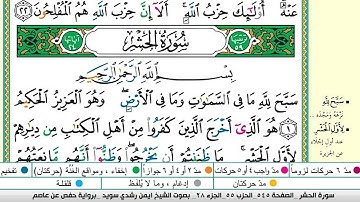 عَنْهُ ۚ أُولَٰئِكَ حِزْبُ اللَّهِ ۚ أَلَا إِنَّ حِزْبَ اللَّهِ هُمُ الْمُفْلِحُونَ ٢٢
سُورَةُ الْحَشْرِ
بِسْمِ اللَّهِ الرَّحْمَٰنِ الرَّحِيمِ
سَبَّحَ لِلَّهِ مَا فِي السَّمَاوَاتِ وَمَا فِي الْأَرْضِ ۖ وَهُوَ الْعَزِيزُ الْحَكِيمُ
١ هُوَ الَّذِي أَخْرَجَ الَّذِينَ كَفَرُوا مِنْ أَهْلِ الْكِتَابِ مِنْ دِيَارِهِمْ
لِأَوَّلِ الْحَشْرِ ۚ مَا ظَنَنْتُمْ أَنْ يَخْرُجُوا ۖ وَظَنُّوا أَنَّهُمْ مَانِعَتُهُمْ
سَبَّحَ لِلَّهِ
لِأَوَّلِ الْحَشْرِ
عن الجزيرة
مدّ ٦ حركات لزوماً مدّ ٢ أو ٤ أو ٦ جوازاً إخفاء، ومواقع الغُنَّة (حركتان) تفخيم
مدّ حركتان إدغام، وما لا يُلفَظ قلقلة
سورة الحشر . الصفحة ٥٤٥ . الجزء ٢٨ . بصوت الشيخ أيمن رشدي سويد . برواية حفص عن عاصم